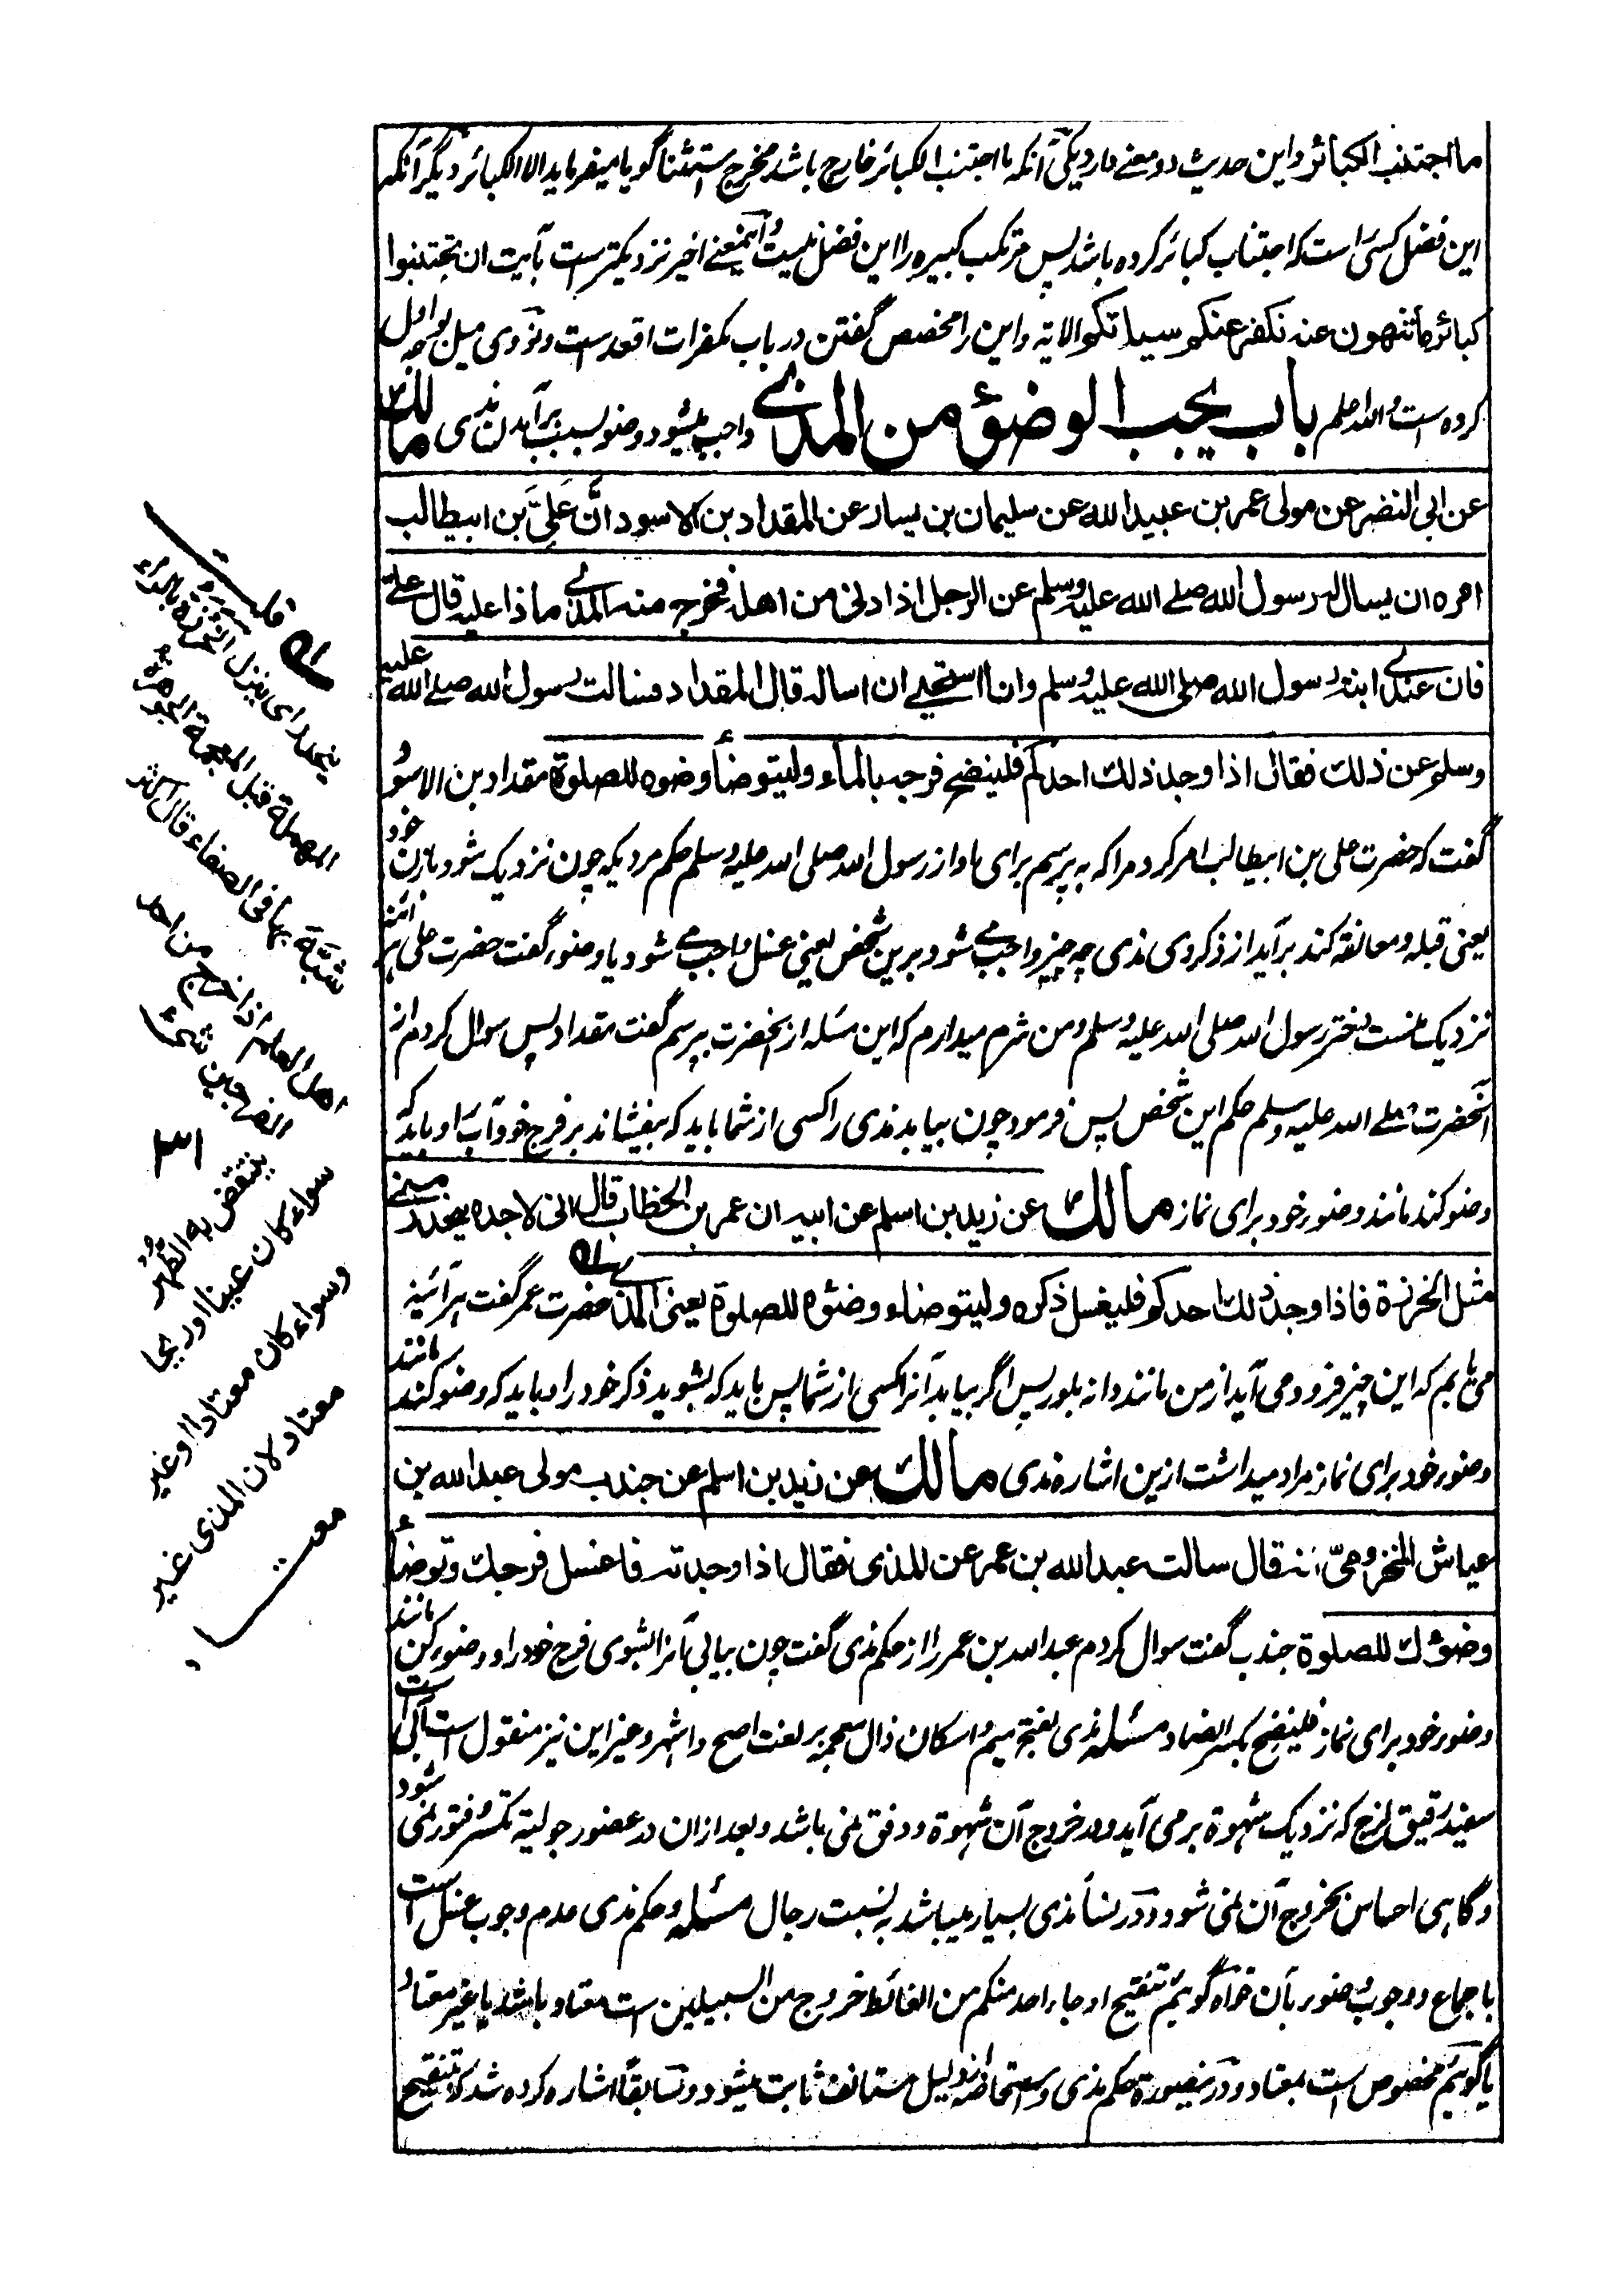 ما اجتنب الکبائر و این حدیث دو معنے دارد یکی آنکه ما اجتنب الکبائر خارج باشد مخرج استثنا گویا میفرماید الا الکبائر دیگر آنکه
این فضل کسی است که اجتناب کبائر کرده باشد پس مرتکب کبیره را این فضل نیست و اینمعنے اخیر نزدیکتر است بآیت ان تجتنبوا
کبائر ما تنهون عنه نکفر عنکم سیاتکم الایة و این را مخصص گفتن در باب مکفرات اقعد است و نووی میل بوجه اول
کرده است والله اعلم باب یجب الوضوء من المذے واجب میشود وضو بسبب برآمدن مذی مالك
عن ابی النضر عن مولی عمر بن عبید الله عن سلیمان بن یسار عن المقداد بن الاسود انّ علیّ بن ابیطالب
امره ان یسال له رسول الله صلے الله علیه وسلم عن الرجل اذا دنی من اهله فخرج منه المذے ماذا علیه قال علے
فان عندے ابنة رسول الله صلی الله علیه وسلم وانا استحیے ان اساله قال المقداد فسالت رسول الله صلے الله علیه
وسلم عن ذلك فقال اذا وجد ذلك احدکم فلینضح فرجه بالماء ولیتوضأ وضوه للصلوة مقداد بن الاسود
گفت که حضرت علی بن ابیطالب امر کرد مرا که به پرسم برای او از رسول الله صلی الله علیه وسلم حکم مردیکه چون نزدیک شود بازن خود
یعنی قبله و معانقه کند برآید از ذکر وی مذی چه چیز واجب مے شود برین شخص یعنی غسل واجب مے شود یا وضو گفت حضرت علی هر آئنه
نزدیک منست دختر رسول الله صلی الله علیه وسلم و من شرم میدارم که این مسئله از آنحضرت بپرسم گفت مقداد پس سوال کردم از
آنحضرت صلے الله علیه وسلم حکم این شخص پس فرمود چون بیابد مذی را کسی از شما باید که بیفشاند بر فرج خود آب او باید که
وضو کند مانند وضور خود برای نماز مالك عن زید بن اسلم عن ابیه ان عمر بن الخطاب قال انی لاجده ینحدر منے
مثل الخرزة فاذا وجد ذلك احدکم فلیغسل ذکره ولیتوضاء وضوءه للصلوة یعنی المذے حضرت عمر گفت هر آئینه
می یابم که این چیز فرود می آید از من مانند دانه بلور پس اگر بیابد آنرا کسی از شما پس باید که بشوید ذکر خود را و باید که وضو کند مانند
وضور خود برای نماز مراد میداشت ازین اشاره مذی مالك عن زید بن اسلم عن جندب مولی عبد الله بن
عیاش المخزومیّ انه قال سالت عبد الله بن عمر عن المذی فقال اذا وجدته فاغسل فرجك وتوضأ
وضوءك للصلوة جندب گفت سوال کردم عبد الله بن عمر را از حکم مذی گفت چون بیابی آنرا بشوی فرج خود را و وضور کن مانند
وضور خود برای نماز فلینضح بکسر الضاد مسئله مذی بفتح میم و اسکان ذال معجمه بر لغت اصح و اشهر و غیر این نیز منقول است آبی است
سفید رقیق لزج که نزدیک شهوة بر می آید و در خروج آن شهوة و دفق نمی باشد و بعد ازان در عضور جولیة تکسر و فتور نمی شود
و گاهی احساس بخروج آن نمی شود و در نسأ مذی بسیار میباشد به نسبت رجال مسئله و حکم مذی عدم وجوب غسل است
باجماع و وجوب وضور بآن خواه گوئیم تنقیح او جاء احد منکم من الغائط خروج من السبیلین است معتاد باشد یا غیر معتاد
یا گوئیم مخصوص است بمعتاد و درینصورة حکم مذی و استحاضه از دلیل مستانف ثابت میشود و سابقًا اشاره کرده شد که تنقیح
قلت
ینحدر ای ینزل الخرزة بالراء
المهملة قبل المعجمة الجوهرة
شبّه بها فی الصفاء قال اکثر
اهل العلم اذا خرج من احد
الفرجین شئ
ینتقض به الطُّهر
سواء کان عینا او ریحا
وسواء کان معتادا او غیر
معتاد لان المذی غیر
معتاد